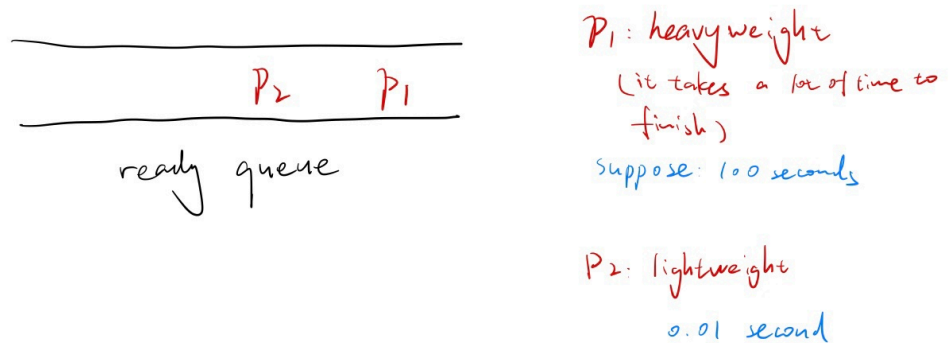 P2 P1
ready queue
P1: heavyweight
(it takes a lot of time to
finish)
suppose: 100 seconds
P2: lightweight
0.01 second